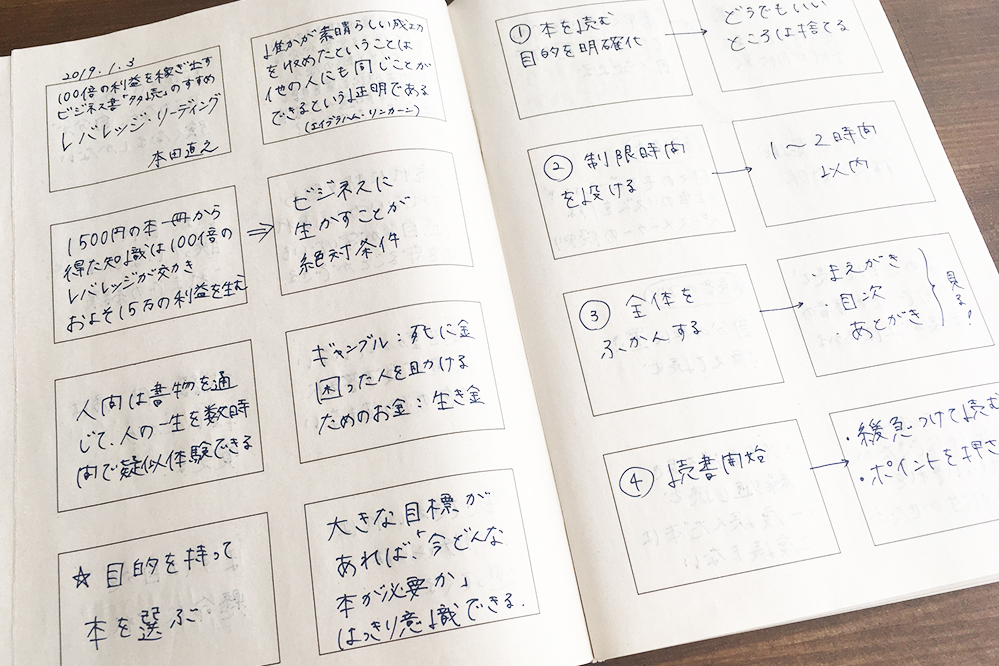 2019.1.3
100倍の利益を稼ぎ出す
ビジネス書「多読」のすすめ
レバレッジ・リーディング
本田直之
誰かが素晴らしい成功
を収めたということは
他の人にも同じことが
できるという証明である
(エイブラハム・リンカーン)
1500円の本一冊から
得た知識は100倍の
レバレッジが効き
およそ15万の利益を生む
⇒
ビジネスに
生かすことが
絶対条件
人間は書物を通
じて、人の一生を数時
間で疑似体験できる
ギャンブル:死に金
困った人を助ける
ためのお金:生き金
☆目的を持って
本を選ぶ
大きな目標が
あれば、「今どんな
本が必要か」
はっきり意識できる.
① 本を読む
目的を明確化
→
どうでもいい
ところは捨てる
② 制限時間
を設ける
→
1〜2時間
以内
③ 全体を
ふかんする
→
・まえがき
・目次
・あとがき
見る!
④ 読書開始
→
・緩急つけて読む
・ポイントを押さ